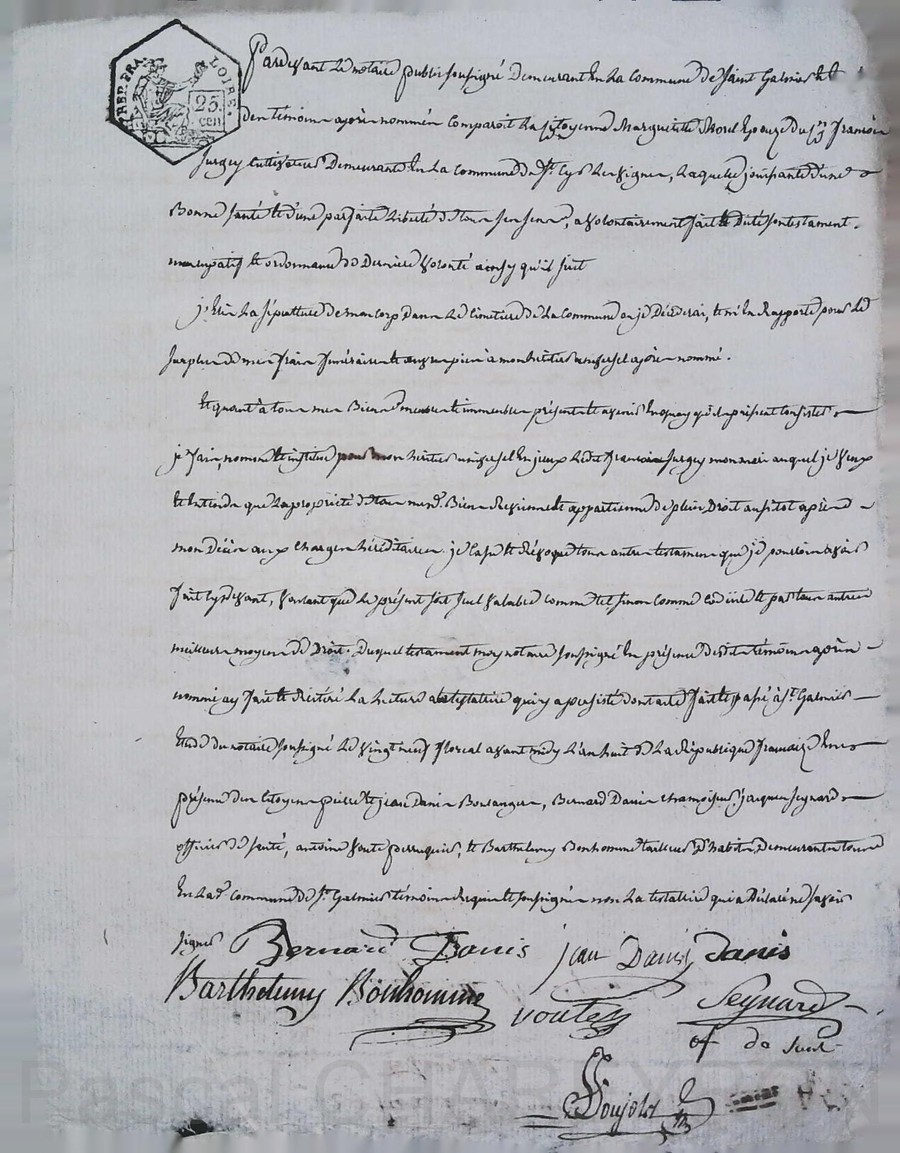 REP. FRA. LOIRE.
25.
cen
Pardevant Le notaire public soussigné Demeurant En La Commune de Saint Galmier Et
Des témoins après nommés Comparoit La Citoyenne Marguerite Morel Epouze du Cn françois
Jurgey Cultivateur Demeurante En La Commune de St Cyr Les vignes, Laquelle jouissante d'une
Bonne santé Et d'une parfaite Liberté de tous ses sens, a volontairement fait Et dicté son testament
nuncupatif Et ordonnance de Derniere volonté ainsy qu'il suit
j'Elis La sépulture de mon corp Dans Le cimetière de La Commune ou je Décéderai, Et m'En Rapporte pour Le
surplus de mes frais funéraires Et œuvres pies à mon héritier universel après nommé.
Et quant à tous mes Biens meubles Et immeubles présents Et avenir En quoy qu'ils puissent Consister
je fais, nomme Et institue pour mon héritier universel En jceux Ledit françois Jurgey mon mari auquel je veux
Et Entends que La propriété de tous mesd. Biens Revienne Et appartienne de plein Droit aussitot après
mon Décès aux Charges héréditaires. je Casse Et Révoque tous autres testaments que je pourrois avoir
fait Cydevant, voulant que Le présent soit seul valable comme tel sinon comme codicile Et par tous autres
meilleurs moyens de Droit. Duquel testament moy notaire soussigné En présence desdits témoins après
nommés ay fait Et Réitéré La Lecture a la testatrice qui y a persisté dont acte fait Et passé à St Galmier
Etude du notaire soussigné Le vingt neuf floreal avant midy L'an huit de La République française En
présence des Citoyens pierre Et jean Danis Boulangers, Bernard Danis chamoiseur, jacques Seynard
officier de santé, antoine voute perruquier, Et Barthelemy Bonhomme tailleur d'habits, Demeurants tous
En Lad. commune de St Galmier témoins Requis Et soussignés non La testatrice qui a Déclaré ne savoir
signer Bernard Danis jean Danis Danis
Barthelemy Bonhomme voute Seynard
of de santé
Soujols